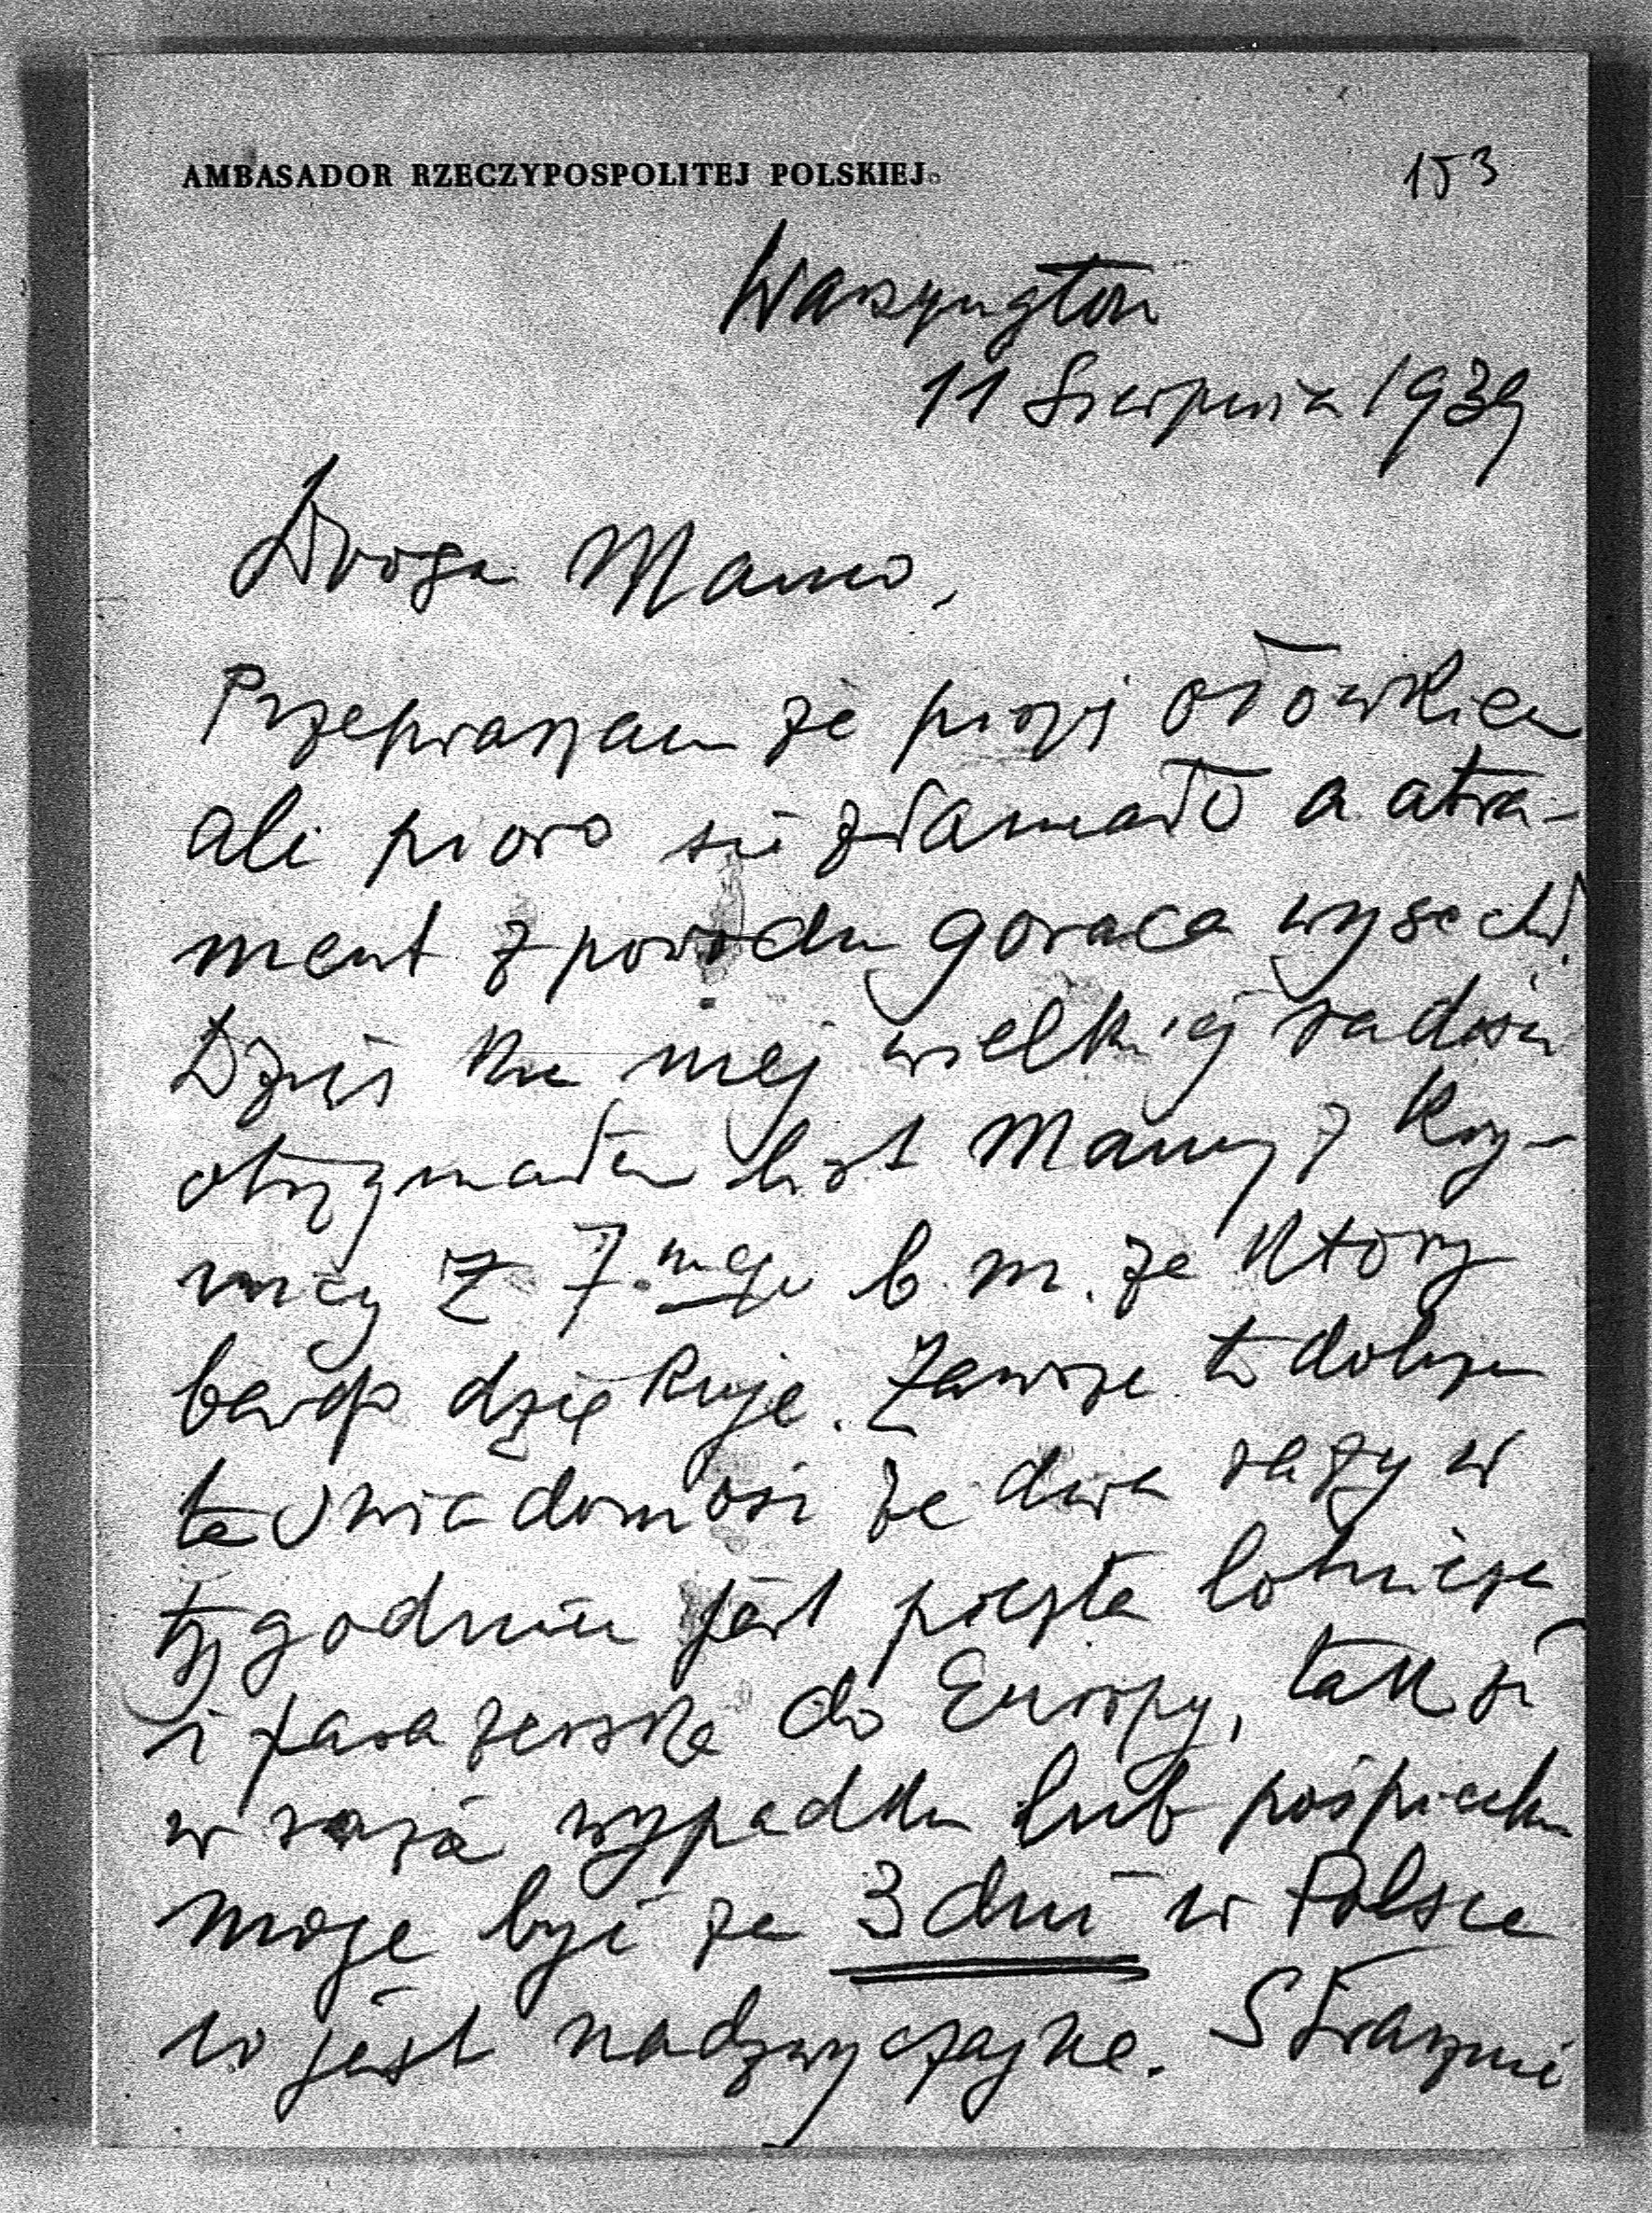 AMBASADOR RZECZYPOSPOLITEJ POLSKIEJ
153
Waszyngton
11 Sierpnia 1939
Droga Mamo,
Przepraszam że piszę ołówkiem
ale pióro się złamało a atra-
ment z powodu gorąca wysechł.
Dziś ku mej wielkiej radości
otrzymałem list Mamy z Kry-
nicy z 7.mego b.m. za który
bardzo dziękuję. Zawsze to dobrze
ta świadomość że dwa razy w
tygodniu jest poczta lotnicza
i pasażerska do Europy, tak że
w razie wypadku lub pośpiechu
mogę być za 3 dni w Polsce
to jest nadzwyczajne. Strasznie